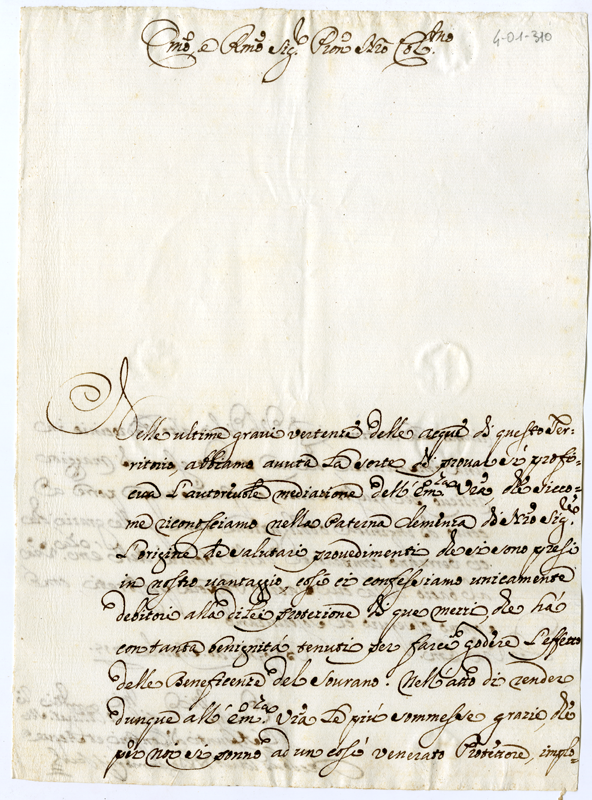 Emo, e Rmo Sig.r Pron Nro Col.mo
4-01-310
Nelle ultime gravi vertenze delle acque di questo Ter=
ritorio abbiamo avuta la sorte di provare sì profi=
cua l'autorevole mediazione dell'Em.za Vra, che sicco=
me riconosciamo nella Paterna Clemenza di Nro Sig.re
l'origine de salutari provedimenti che si sono presi
in nostro vantaggio, così ci confessiamo unicamente
debitori alla di Lei Protezione di que mezzi, che hà
con tanta benignità tenuti per farci godere l'effetto
delle Beneficenze del Sourano. Nell'atto di render
dunque all'Em.za Vra le più sommesse grazie, che
per noi si ponno ad un così venerato Protettore, implo=